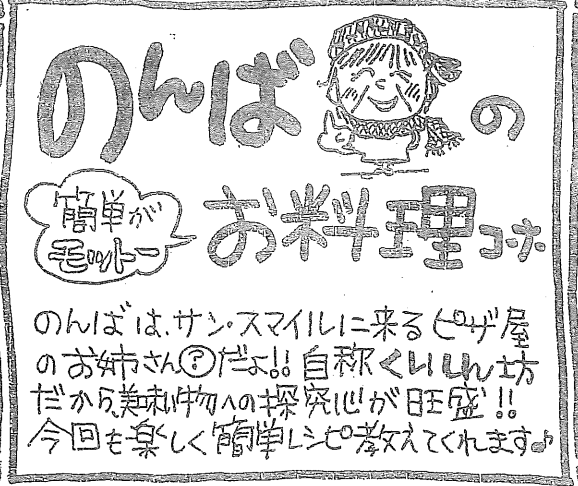 のんばの
お料理コーナー
簡単が
モットー
のんばは、サン・スマイルに来るピザ屋
のお姉さん?だよ!!自称くいしん坊
だから、美味い物への探究心が旺盛!!
今回も楽しく簡単レシピ教えてくれます♪